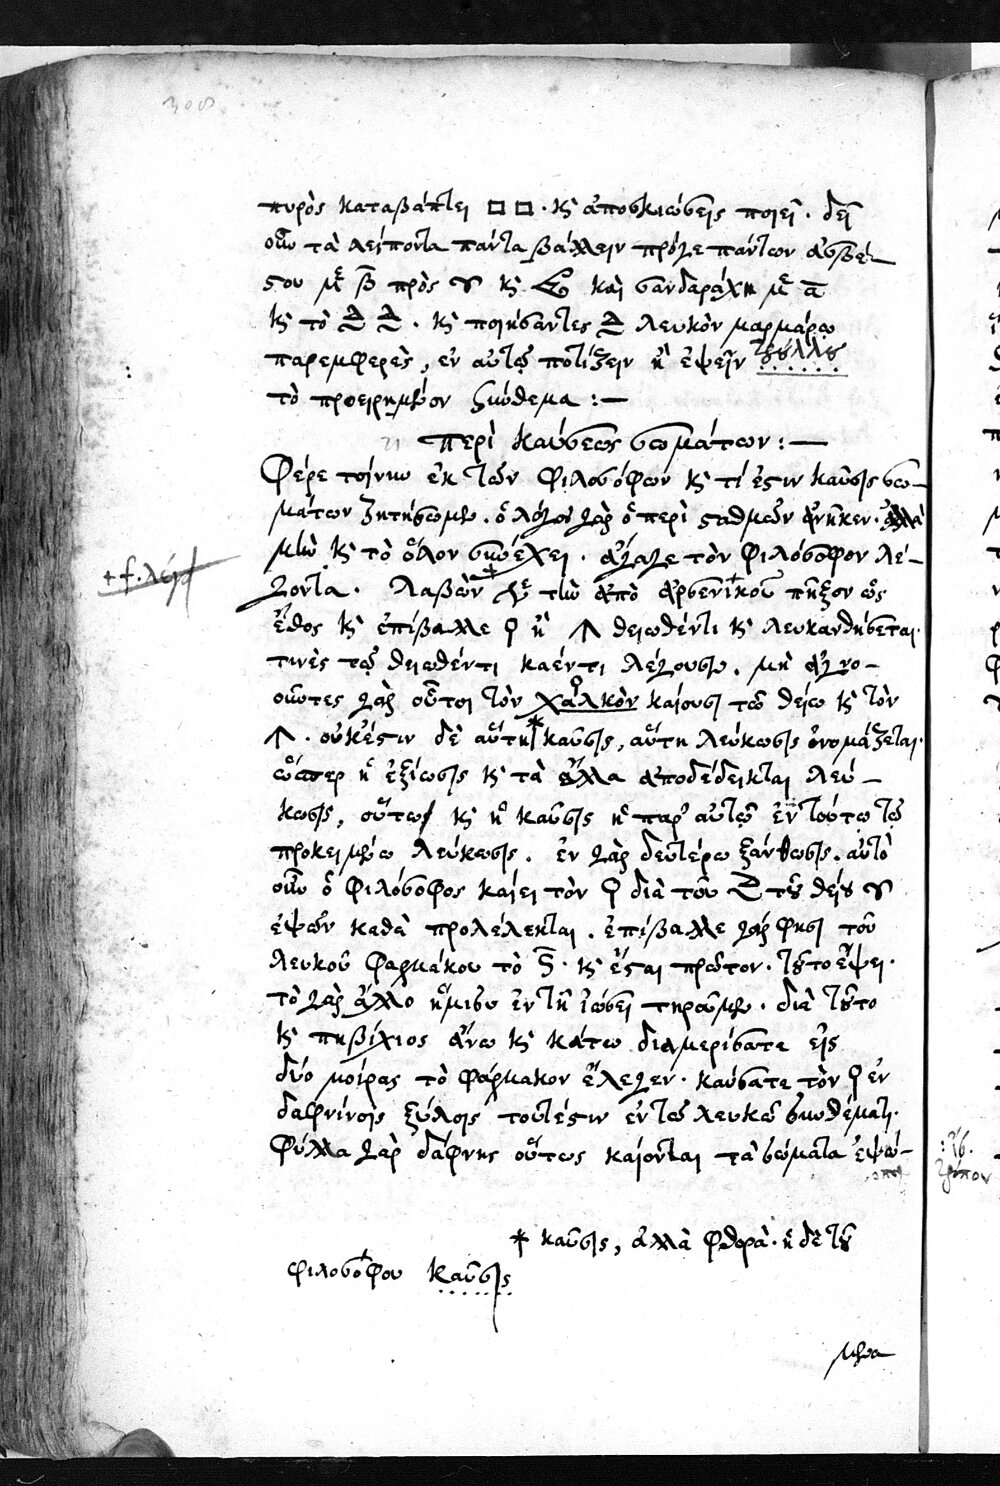 308
πυρὸς καταβάπτει □□· κ̀ ἀποσκιώσεις ποιεῖ· δεῖ
οὖν τὰ λείποντα πάντα βάλλειν πρόγε πάντων ἀσβέ-
στου μέρ β̄ πρὸς κ̀ καὶ σανδαράχη μέρ ᾱ
κ̀ τὸ · κ̀ ποιήσαντες λευκὸν μαρμάρῳ
παρεμφερὲς, ἐν αὐτῷ ποτίζειν ἢ ἐψεῖν
τὸ προειρημένον συνθεμα :—
Περὶ καύσεως σωμάτων :—
Φέρε τοίνυν ἐκ τῶν φιλοσόφων κ̀ τί ἐστιν καῦσις σω-
μάτων ζητήσωμεν. ὁ λόγος γὰρ ὁ περὶ σταθμῶν ἀνῆκεν· ἀλλὰ
μὴν κ̀ τὸ ὅλον συνέχει· ἄγαγε τὸν φιλόσοφον λέ-
+ f. λέγει
γοντα· Λαβὼν τὴν ἀπὸ ἀρσενίκου πῆξον ὡς
ἔθος κ̀ ἐπίβαλλε ♀ ἢ θειωθέντι κ̀ λευκανθήσεται·
τινὲς τῷ θειωθέντι καέντι λέγουσιν. μὴ ἀγνο-
οῦντες γὰρ οὗτοι τὸν χαλκὸν καίουσι τῷ θείῳ κ̀ τὸν
· οὐκέστιν δὲ αὕτη * καῦσις, αὕτη λεύκωσις ὀνομάζεται·
ὥσπερ ἡ ἐξίωσις κ̀ τὰ ἄλλα ἀποδέδεικται λεύ-
κωσις, οὕτως κ̀ ἡ καῦσις ἡ παρ' αὐτῷ ἐν τούτῳ τῷ
προκειμένῳ λεύκωσις. ἐν γὰρ δευτέρῳ ξάνθωσις. αὐτὸ
οὖν ὁ φιλόσοφος καίει τὸν ♀ διὰ τοῦ τοῦ θείου
ἐψῶν καθὰ προλέλεκται. ἐπίβαλλε γάρ φησι τοῦ
λευκοῦ φαρμάκου τὸ · κ̀ ἔσται πρῶτον· τοῦτο ἕψει·
τὸ γὰρ ἄλλο ἥμισυ ἐν τῇ ἰώσει τηροῦμεν· διὰ τοῦτο
κ̀ πηβίχιος ἄνω κ̀ κάτω διαμερίσατε εἰς
δύο μοίρας τὸ φάρμακον ἔλεγεν· καύσατε τὸν ♀ ἐν
δαφνίνοις ξύλοις τουτέστιν ἐν τῷ λευκῷ συνθέματι·
Φύλλα γὰρ δάφνης οὕτως καίονται τὰ σώματα ἐψώ-
* καῦσις, ἀλλὰ φθορὰ· ἡ δὲ τοῦ
φιλοσόφου καῦσις
μενα